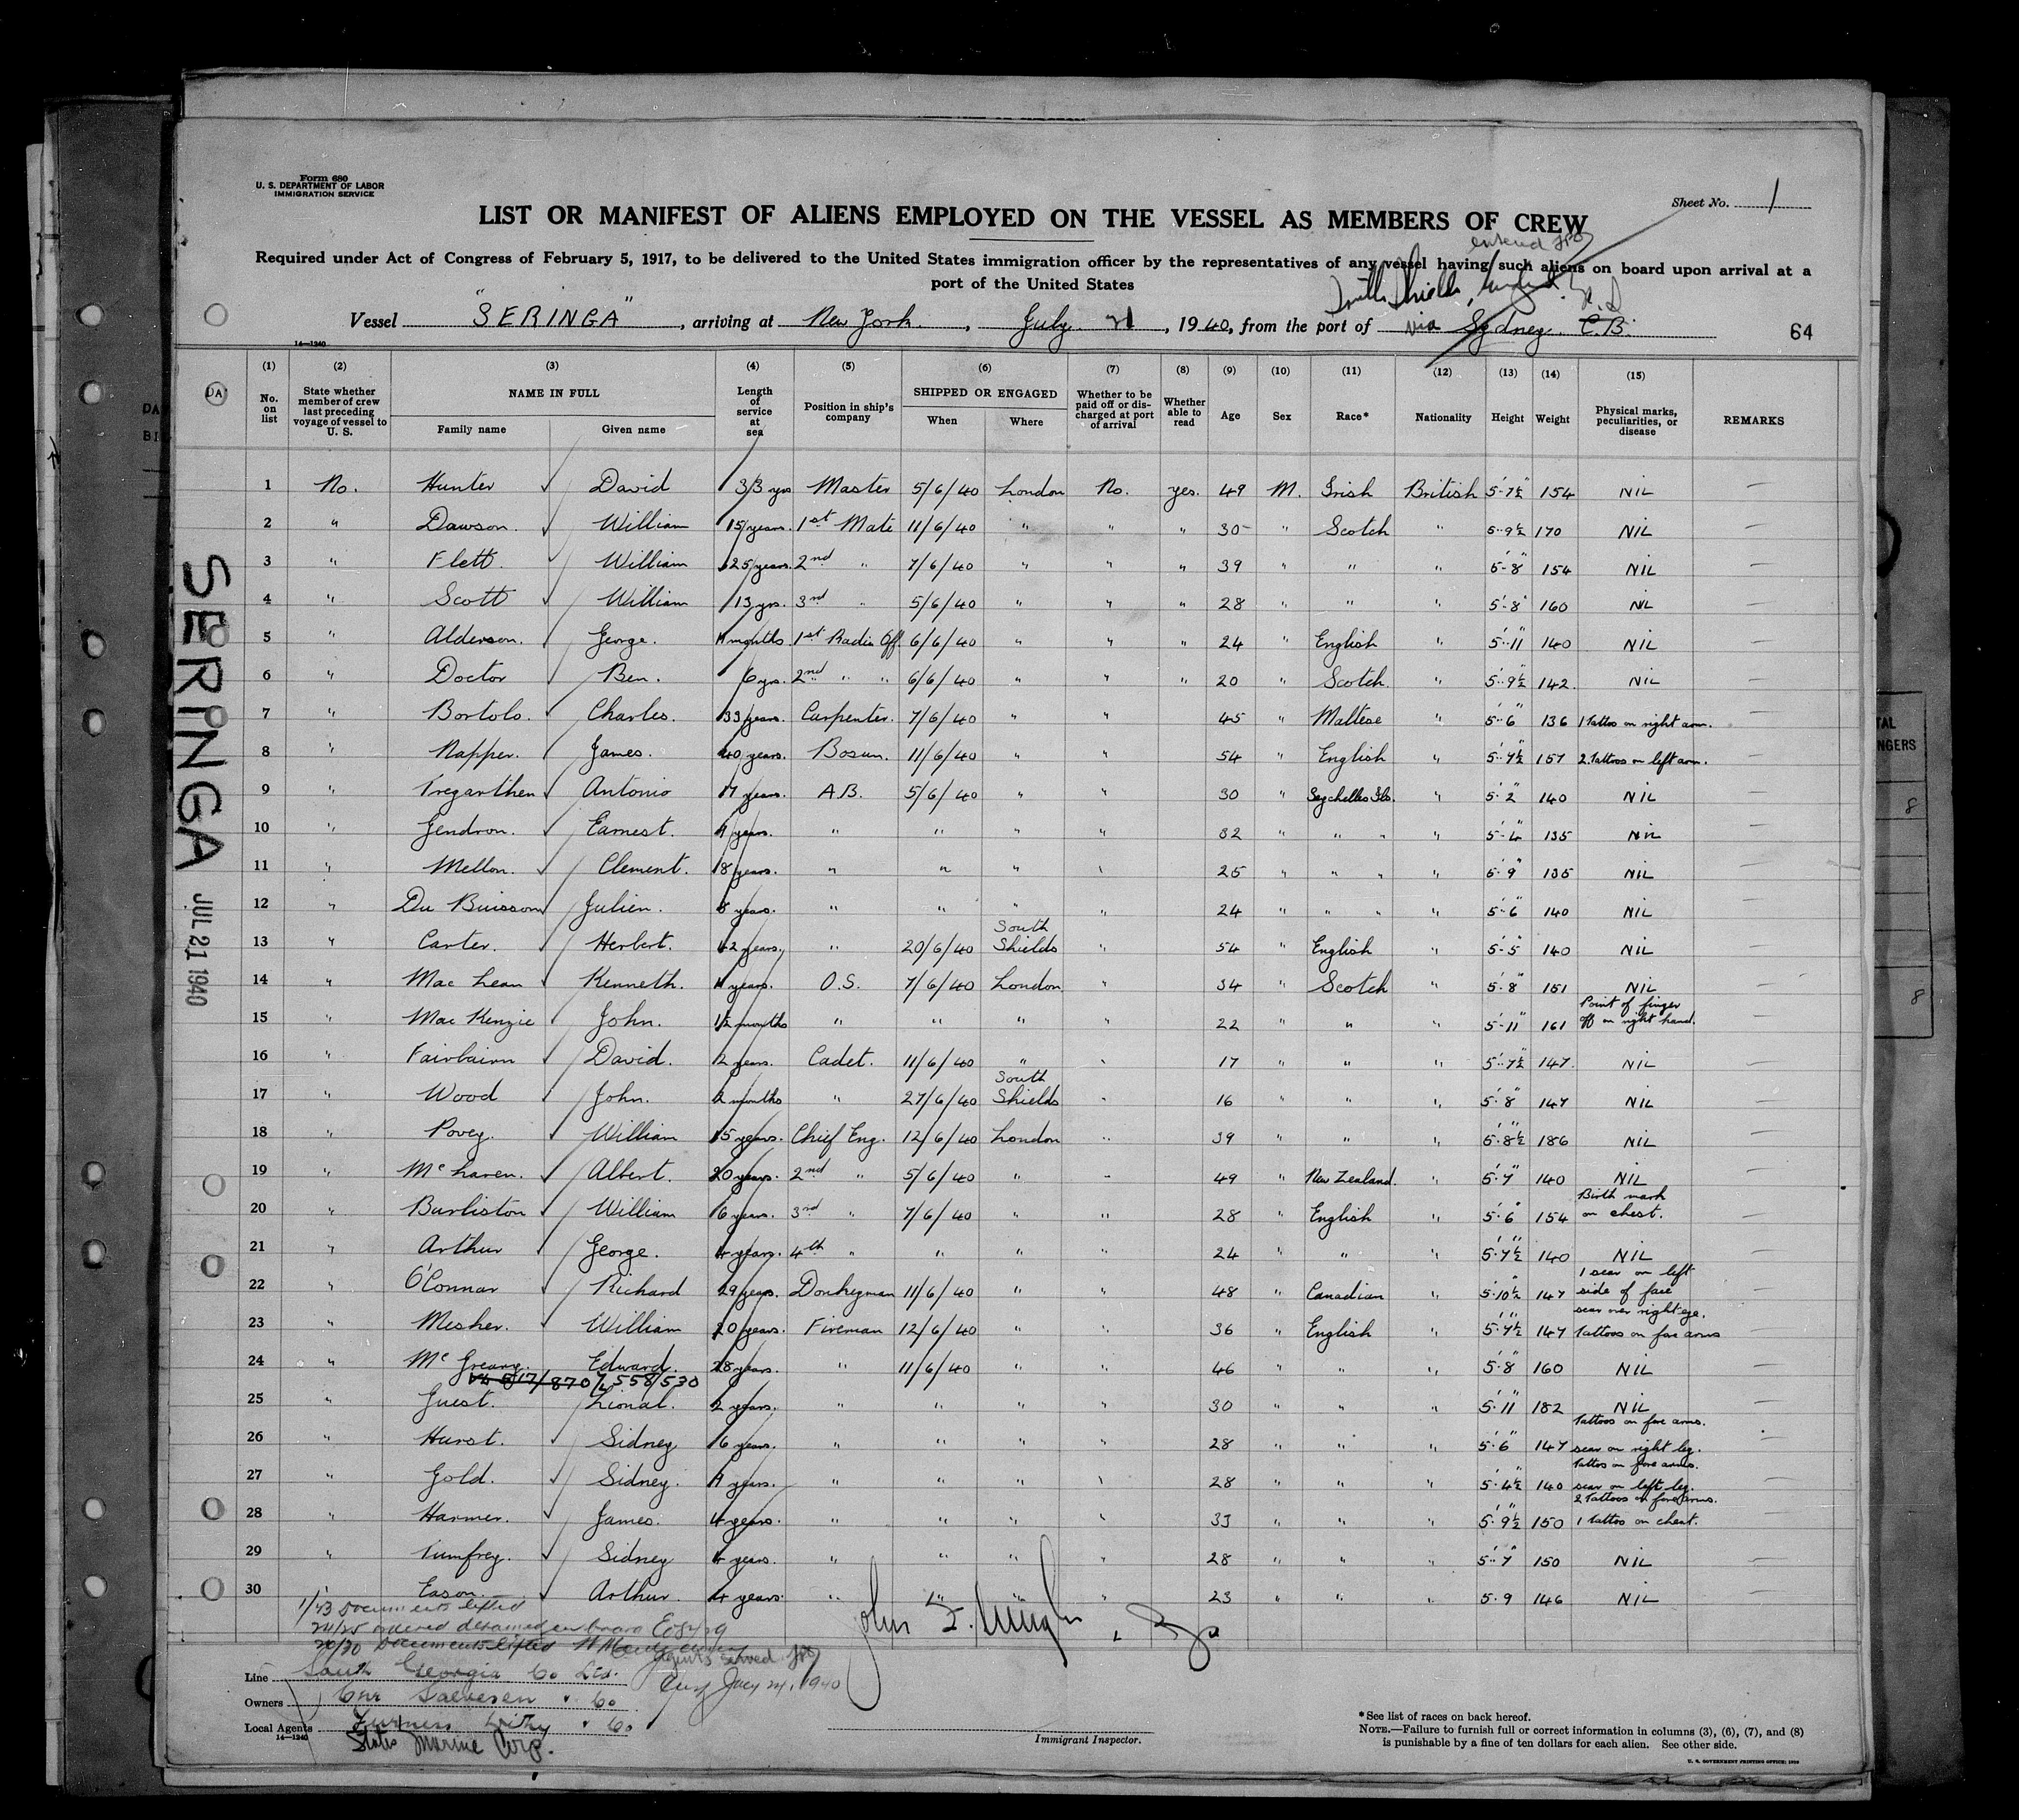 Form 680
U. S. DEPARTMENT OF LABOR
IMMIGRATION SERVICE
Sheet No. 1
LIST OR MANIFEST OF ALIENS EMPLOYED ON THE VESSEL AS MEMBERS OF CREW
entered
Required under Act of Congress of February 5, 1917, to be delivered to the United States immigration officer by the representatives of any vessel having such aliens on board upon arrival at a
port of the United States
Shields,
Vessel "SERINGA", arriving at New York, July 21, 1940, from the port of via Sydney C.B.
64
14—1240
DA
(1) (2) (3) (4) (5) (6) (7) (8) (9) (10) (11) (12) (13) (14) (15)
No. on list
State whether member of crew last preceding voyage of vessel to U. S.
NAME IN FULL
Family name Given name
Length of service at sea
Position in ship's company
SHIPPED OR ENGAGED
When Where
Whether to be paid off or discharged at port of arrival
Whether able to read
Age Sex Race* Nationality Height Weight
Physical marks, peculiarities, or disease
REMARKS
1 No. Hunter David 33 yrs Master 5/6/40 London No. yes. 49 M. Irish British 5'-7½" 154 NIL —
2 " Dawson. William 15 years. 1st Mate 11/6/40 " " " 30 " Scotch " 5'-9½ 170 NIL —
3 " Flett. William 25 years. 2nd " 7/6/40 " " " 39 " " " 5'-8" 154 NIL —
4 " Scott William 13 yrs. 3rd " 5/6/40 " " " 28 " " " 5'-8" 160 NIL —
5 " Alderson. George. 11 months 1st Radio Off. 6/6/40 " " " 24 " English " 5'-11" 140 NIL —
6 " Doctor Ben. 6 yrs. 2nd " " 6/6/40 " " " 20 " Scotch. " 5'-9½" 142. NIL —
7 " Bortolo. Charles. 33 years. Carpenter. 7/6/40 " " 45 " Maltese " 5'-6" 136 1 Tattoo on right arm. —
8 " Napper. James. 40 years. Bosun. 11/6/40 " " 54 " English " 5'-7½" 157 2 Tattoos on left arm. —
9 " Tregarthen Antonio 17 years. A.B. 5/6/40 " " 30 " Seychelles Ils. " 5'-2" 140 NIL —
10 " Gendron. Earnest. 9 years. " " " " 32 " " " " 5'-4" 135 NIL —
11 " Mellon. Clement. 8 years. " " " " 25 " " " " 5'-9" 135 NIL —
12 " Du Buisson Julien. 8 years. " " " " 24 " " " " 5'-6" 140 NIL —
13 " Carter. Herbert. 42 years. " 20/6/40 South Shields " 54 " English " 5'-5" 140 NIL —
14 " Mac Lean Kenneth. 11 years. O.S. 7/6/40 London " 34 " Scotch " 5'-8" 151 NIL —
15 " Mac Kenzie John. 1½ months " " " " 22 " " " 5'-11" 161 Point of finger off on right hand. —
16 " Fairbairn David. 2 years. Cadet. 11/6/40 " " 17 " " " 5'-7½" 147. NIL —
17 " Wood John. 2 months " 27/6/40 South Shields " 16 " " " 5'-8" 147 NIL —
18 " Povey. William 15 years. Chief Eng. 12/6/40 London " 39 " " " 5'-8½" 186 NIL —
19 " Mc Laren. Albert. 20 years. 2nd " 5/6/40 " " 49 " New Zealand. " 5'-7" 140 NIL —
20 " Burliston William 6 years. 3rd " 7/6/40 " " 28 " English " 5'-6" 154 Birth mark on chest. —
21 " Arthur George. 4 years. 4th " " " " 24 " " " 5'-7½" 140 NIL —
22 " O'Connar Richard 29 years. Donkeyman 11/6/40 " " 48 " Canadian " 5'-10½" 147 1 scar on left side of face —
23 " Mesher. William 20 years. Fireman 12/6/40 " " 36 " English " 5'-7½" 147 scar over right eye. Tattoos on fore arms —
24 " Mc Greary. Edward. 28 years. " 11/6/40 " " 46 " " " 5'-8" 160 NIL —
558/530
25 " Guest. Lional. 2 years. " " " " 30 " " " 5'-11" 182 NIL —
26 " Hurst. Sidney 6 years. " " " " 28 " " " 5'-6" 147 Tattoos on fore arms. scar on right leg. —
27 " Gold. Sidney. 9 years. " " " " 28 " " " 5'-4½" 140 Tattoo on fore arms. scar on left leg. —
28 " Harmer. James. 4 years. " " " " 33 " " " 5'-9½" 150 2 Tattoos on fore arms. 1 tattoo on chest. —
29 " Tumfrey. Sidney 4 years. " " " " 28 " " " 5'-7" 150 NIL —
30 " Eason. Arthur. 4 years. " " " " 23 " " " 5.9 146 NIL —
1/23 Documents lifted
24/25 ordered detained on board
26/30 Documents lifted
Agents served
July 21, 1940
Line South Georgia Co Ltd.
Owners Chr Salvesen & Co
Local Agents Furness Withy & Co
14—1240
States Marine Corp.
Immigrant Inspector.
* See list of races on back hereof.
NOTE.—Failure to furnish full or correct information in columns (3), (6), (7), and (8)
is punishable by a fine of ten dollars for each alien. See other side.
U. S. GOVERNMENT PRINTING OFFICE
SERINGA
JUL 21 1940
TAL
NGERS
8
8